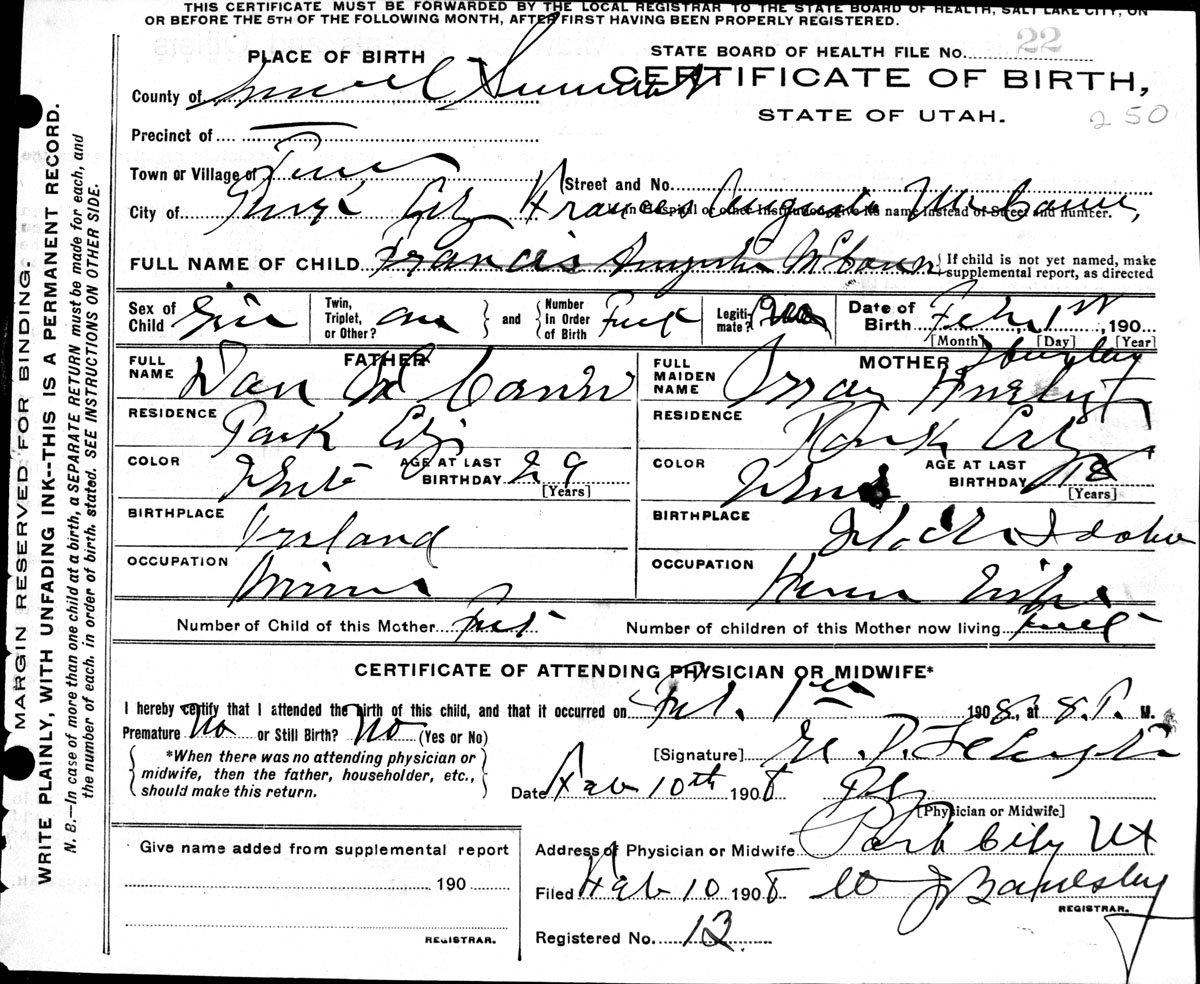 THIS CERTIFICATE MUST BE FORWARDED BY THE LOCAL REGISTRAR TO THE STATE BOARD OF HEALTH, SALT LAKE CITY, ON
OR BEFORE THE 5TH OF THE FOLLOWING MONTH, AFTER FIRST HAVING BEEN PROPERLY REGISTERED.
MARGIN RESERVED FOR BINDING.
WRITE PLAINLY, WITH UNFADING INK--THIS IS A PERMANENT RECORD.
N. B.—In case of more than one child at a birth, a SEPARATE RETURN must be made for each, and
the number of each, in order of birth, stated. SEE INSTRUCTIONS ON OTHER SIDE.
PLACE OF BIRTH
STATE BOARD OF HEALTH FILE No. 22
CERTIFICATE OF BIRTH,
STATE OF UTAH.
250
County of Summit
Precinct of
Town or Village of
Street and No.
City of Park City Frances Augusta McCann,
If in Hospital or other Institution, give its name instead of Street and number.
FULL NAME OF CHILD Francis Augusta McCann { If child is not yet named, make
supplemental report, as directed
Sex of
Child Girl
Twin,
Triplet,
or Other? One
and
Number
in Order
of Birth First
Legiti-
mate? Yes
Date of
Birth Feb, 1st, 190
[Month] [Day] [Year]
FATHER
FULL
NAME Dan McCann
RESIDENCE Park City
COLOR White AGE AT LAST
BIRTHDAY 29
[Years]
BIRTHPLACE Ireland
OCCUPATION Miner
MOTHER
FULL
MAIDEN
NAME
RESIDENCE Park City
COLOR White AGE AT LAST
BIRTHDAY 18
[Years]
BIRTHPLACE Idaho
OCCUPATION House Wife
Number of Child of this Mother First Number of children of this Mother now living First
CERTIFICATE OF ATTENDING PHYSICIAN OR MIDWIFE*
I hereby certify that I attended the birth of this child, and that it occurred on Feb. 1st 1908, at 8. P. M.
Premature No or Still Birth? No (Yes or No)
*When there was no attending physician or
midwife, then the father, householder, etc.,
should make this return.
[Signature]
Date Feb 10th 1908
[Physician or Midwife]
Address of Physician or Midwife Park City Ut
Filed Feb 10 1908
REGISTRAR.
Registered No. 12
Give name added from supplemental report
190
REGISTRAR.